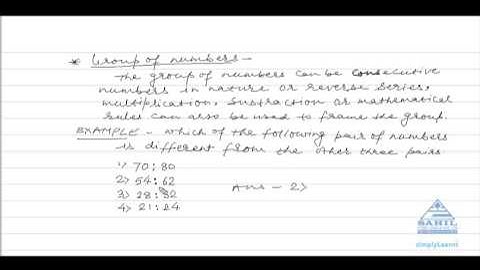 * Group of numbers -
The group of numbers can be consecutive
numbers in nature or reverse series,
multiplication, subtraction or mathematical
rules can also be used to frame the group.
EXAMPLE - which of the following pair of numbers
is different from the other three pairs
1) 70:80
2) 54:62
3) 28:32
4) 21:24
Ans - 2)
SAHIL
simplylearnt